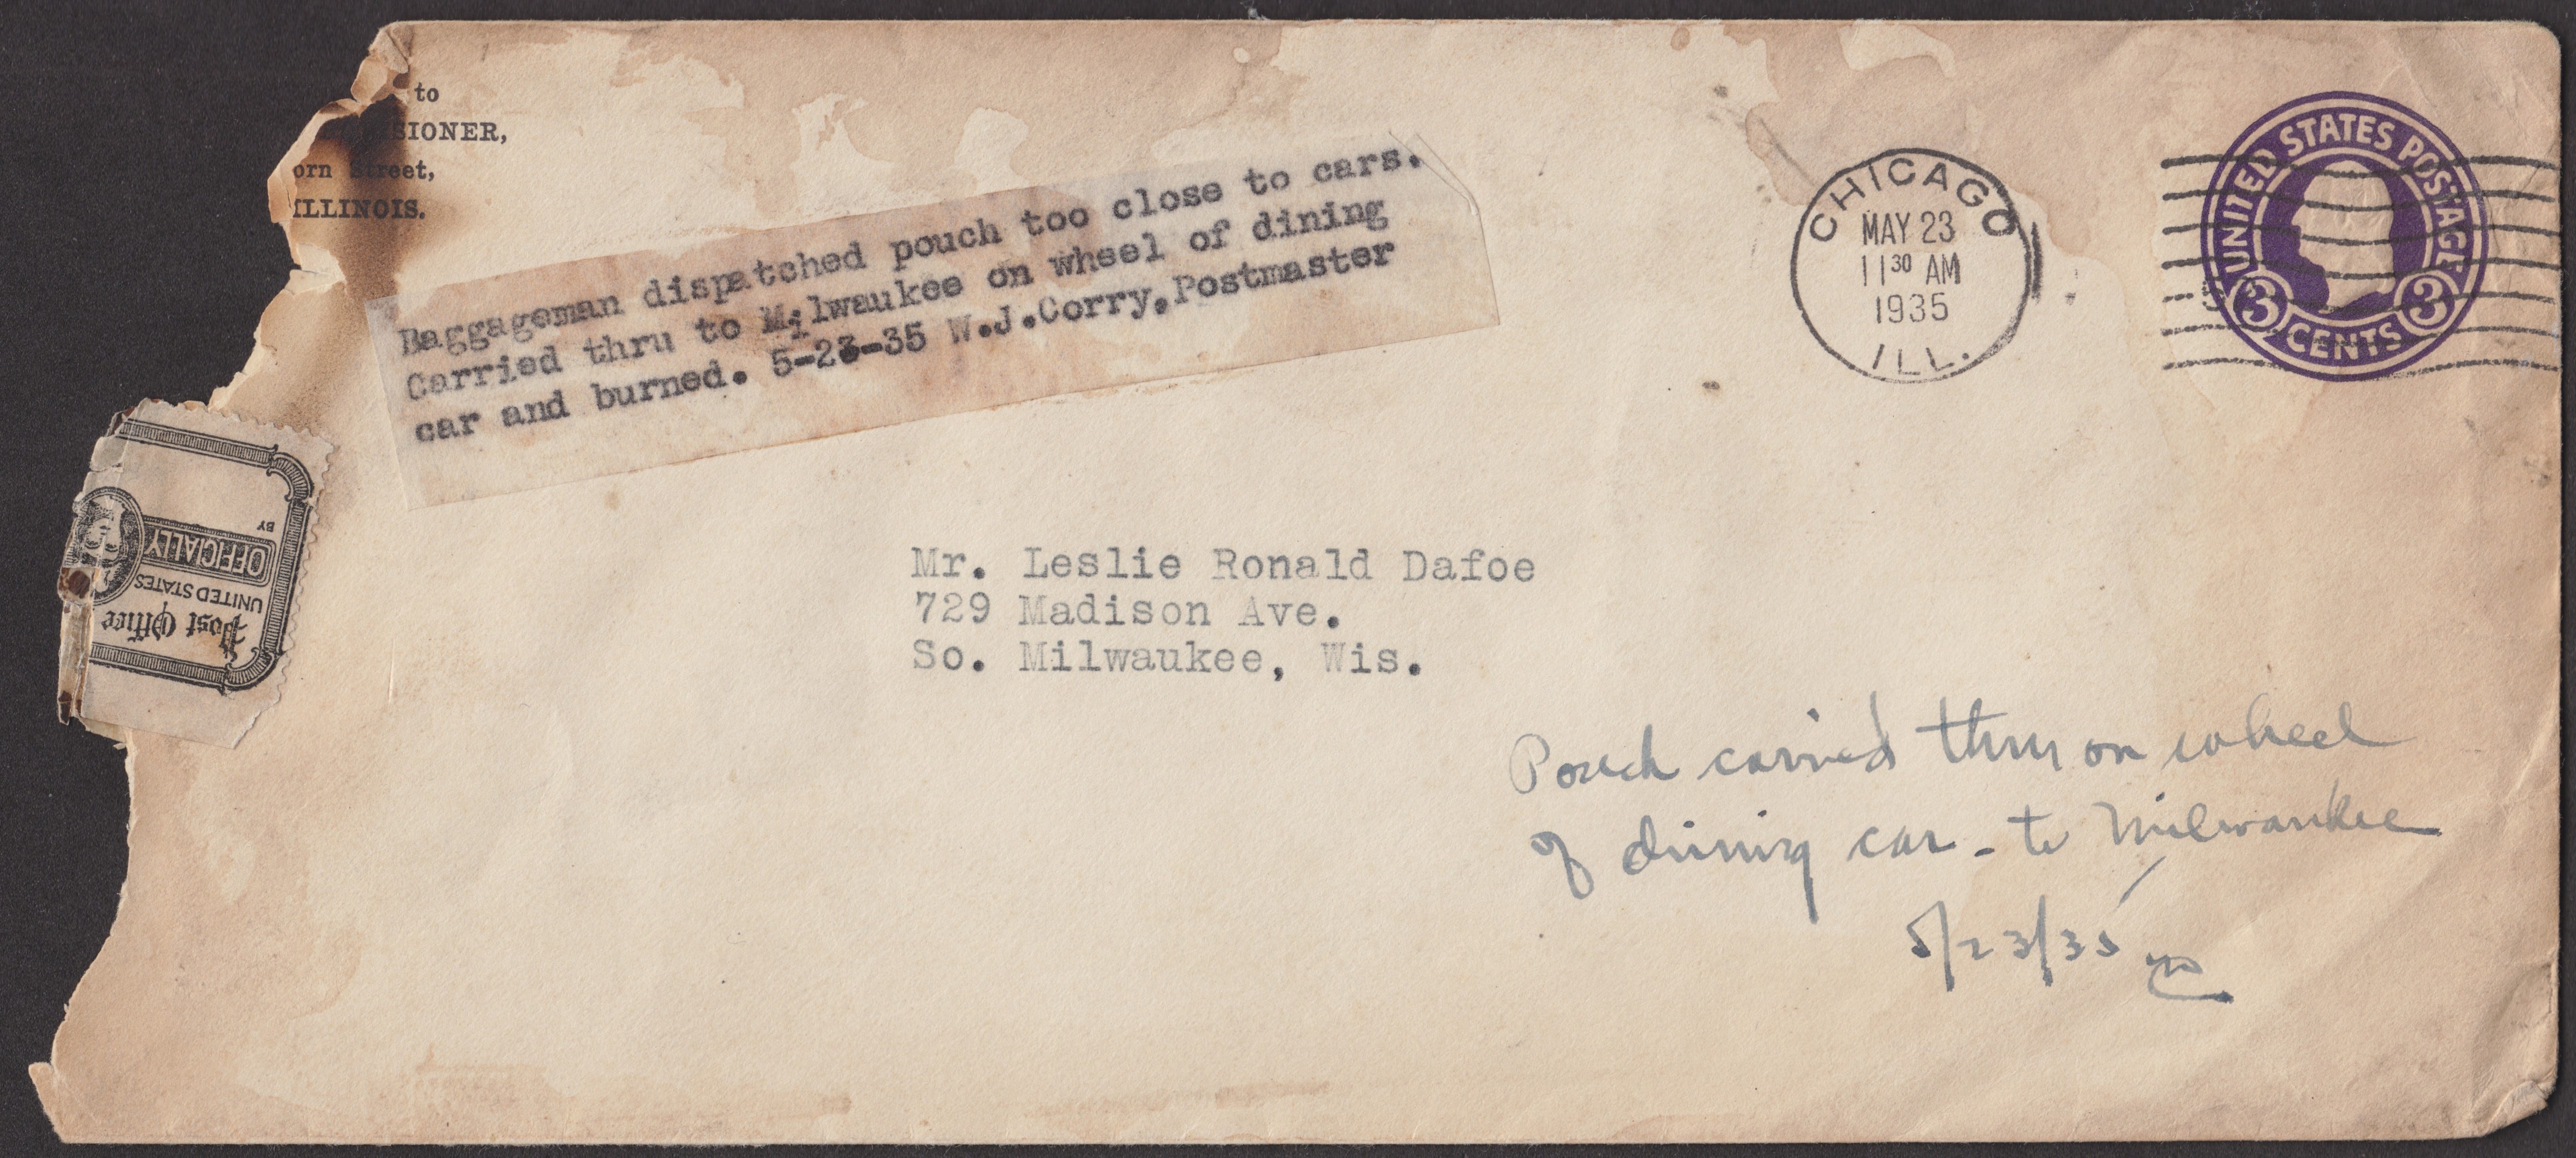 to
SIONER,
orn Street,
ILLINOIS.
Baggageman dispatched pouch too close to cars.
Carried thru to Milwaukee on wheel of dining
car and burned. 5-23-35 W.J.Corry,Postmaster
CHICAGO
MAY 23
11 30 AM
1935
ILL.
UNITED STATES POSTAGE
3 CENTS 3
Post Office
UNITED STATES
OFFICIALLY
BY
Mr. Leslie Ronald Dafoe
729 Madison Ave.
So. Milwaukee, Wis.
Pouch carried thru on wheel
of dining car - to Milwaukee
5/23/35